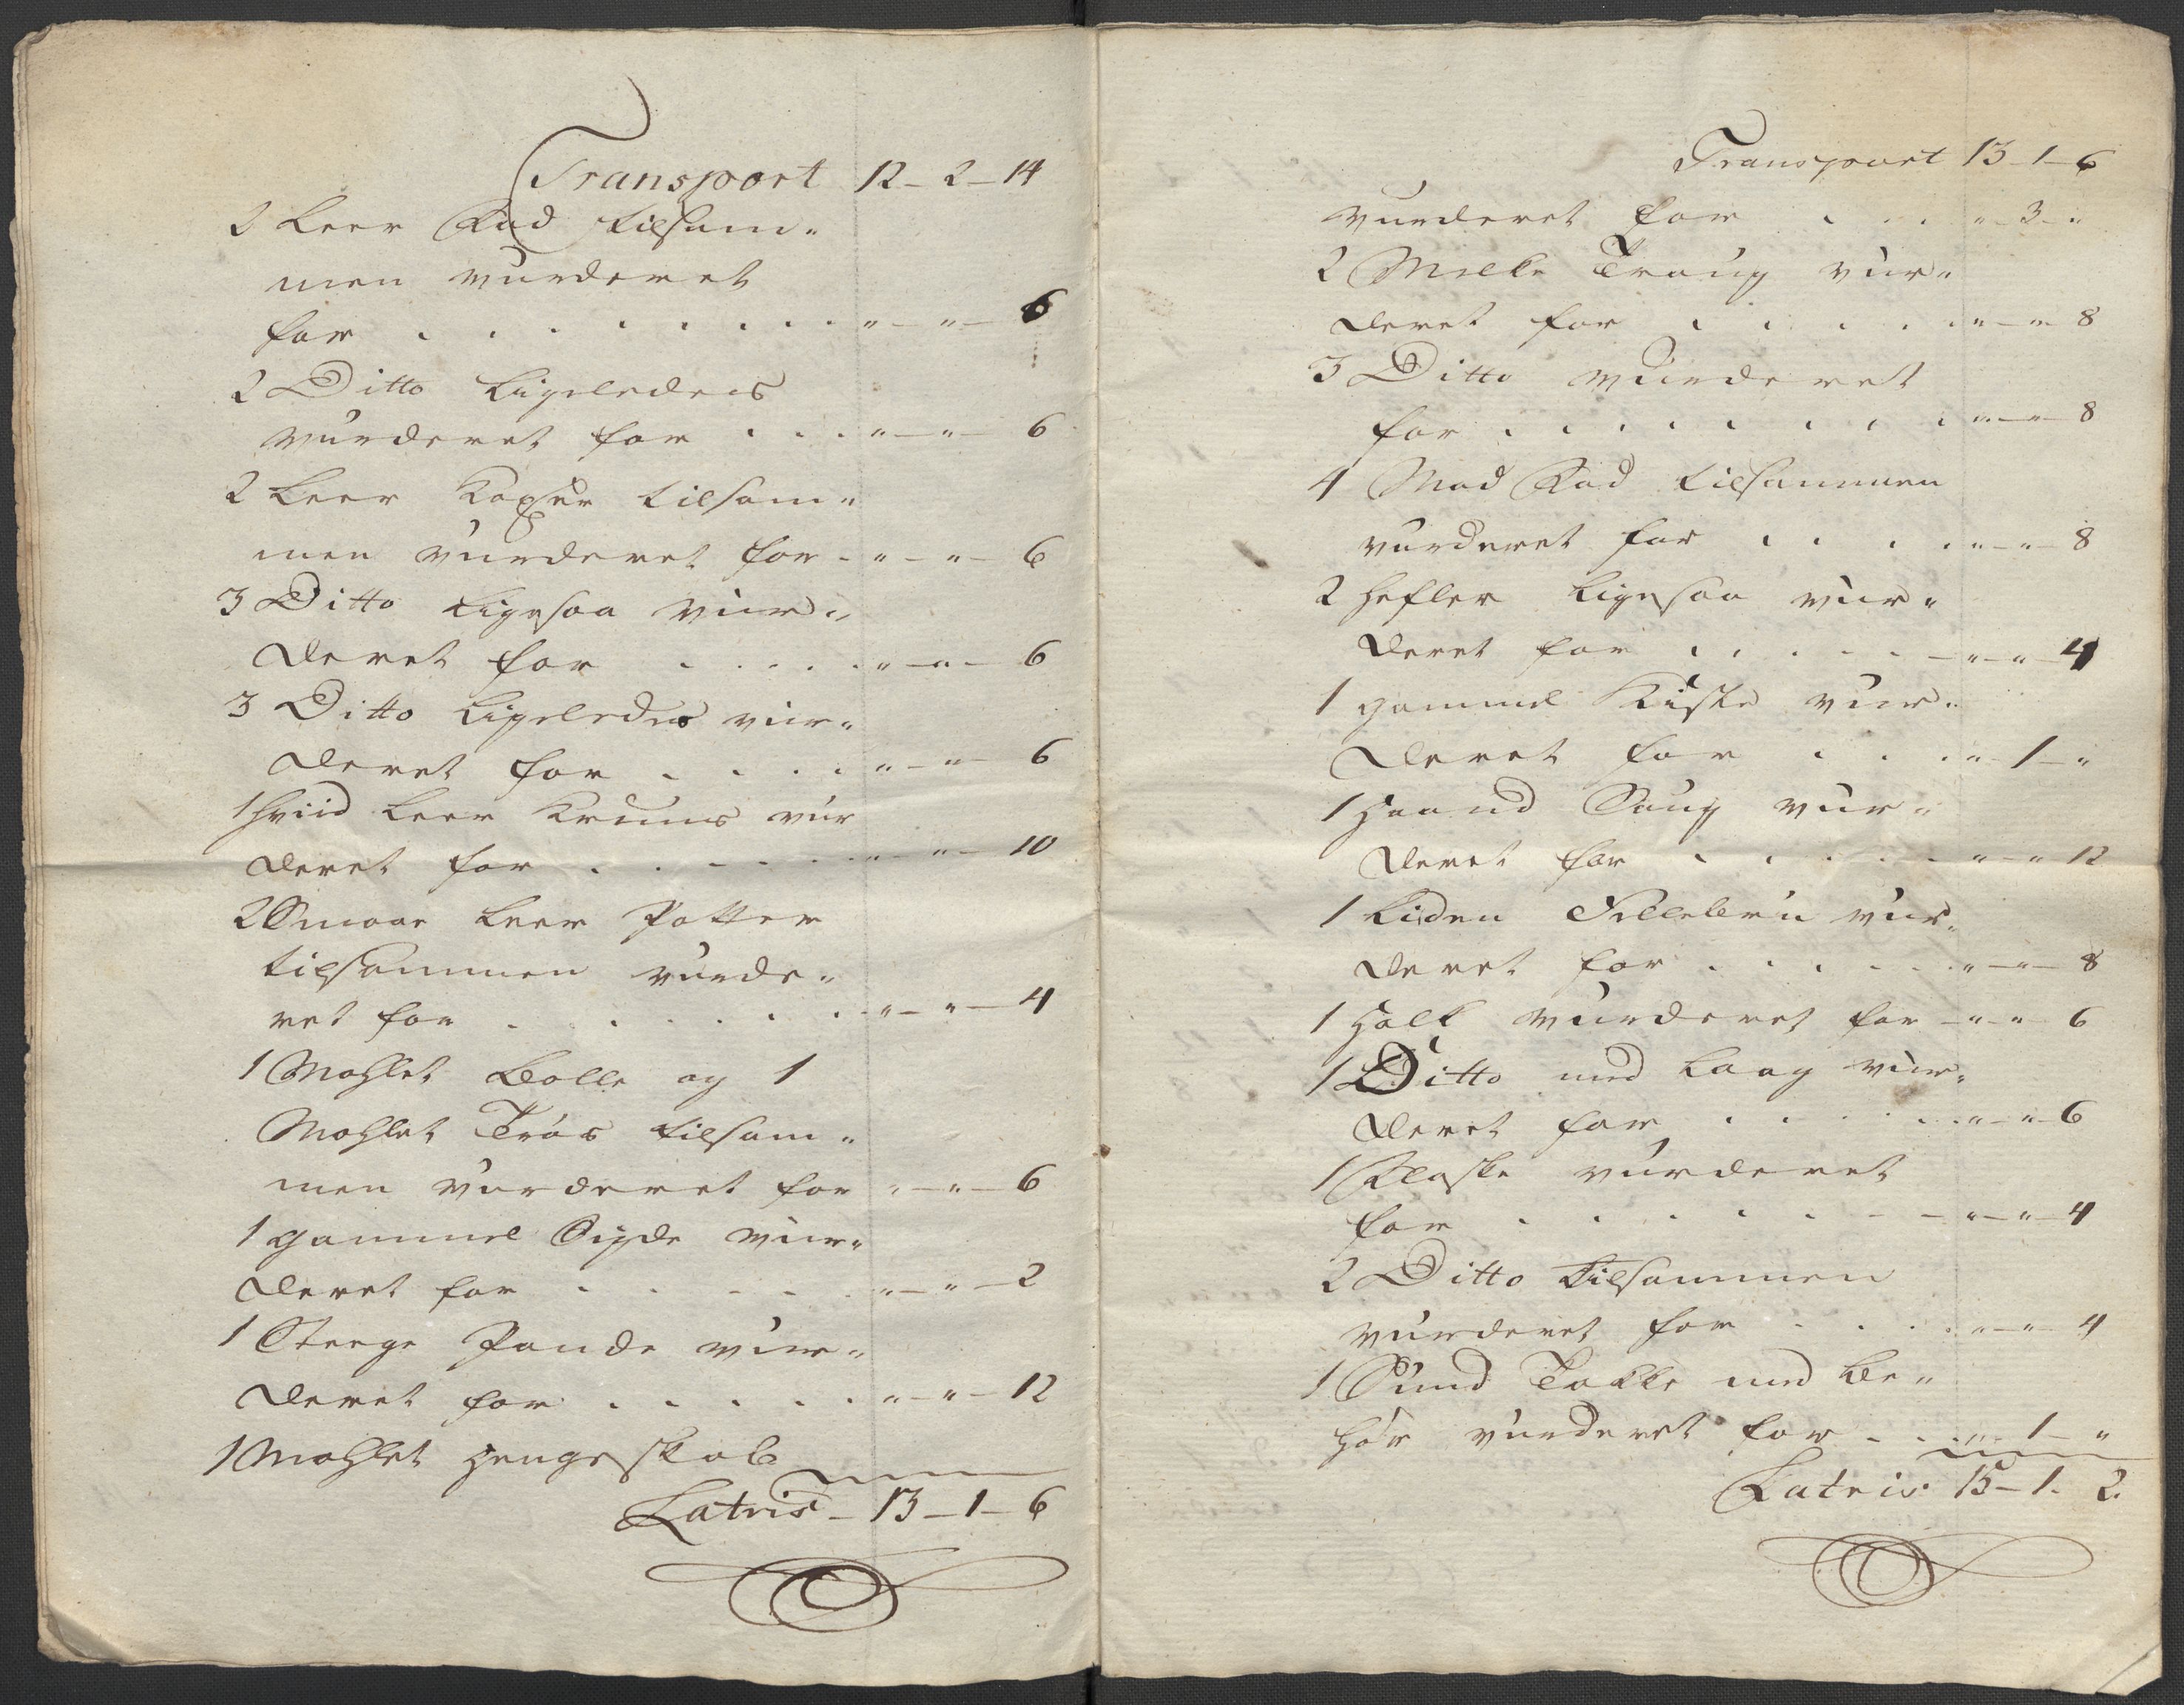 Transport 12 - 2 - 14
2 Leer Fad tilsam„
men vurderet
for . . . . . . . „ - „ - 6
2 Ditto ligeledes
vurderet for . . . „ - „ - 6
2 Leer Kopper tilsam„
men vurderet for - „ - „ - 6
3 Ditto ligesaa vur„
deret for . . . . . „ - „ - 6
3 Ditto ligeledes vur„
deret for . . . . „ - „ - 6
1 hviid Leer Kruus vur
deret for . . . . . „ - „ - 10
2 Smaae Leer Potter
tilsammen vurde„
ret for . . . . . . „ - „ - 4
1 Mahlet Bolle og 1
Mahlet Tros tilsam„
men vurderet for „ - „ - 6
1 gammel Sigde vur„
deret for . . . . . „ - „ - 2
1 Steege Pande vur„
deret for . . . . . „ - „ - 12
1 Mahlet Hengeskab
Latris - 13 - 1 - 6
Transport 13 - 1 - 6
vurderet for . . . „ - 3 - „
2 Melke Traug vur„
deret for . . . . . „ - „ - 8
3 Ditto vurderet
for . . . . . . . . „ - „ - 8
4 Mad Fad tilsammen
vurderet for . . . . „ - „ - 8
2 Hefler ligesaa vur„
deret for . . . . . - „ - „ - 4
1 gammel Kiste vur„
deret for . . . „ - 1 - „
1 Haand Saug vur„
deret for . . . . . „ - „ - 12
1 liden vur„
deret for . . . . . . „ - „ - 8
1 Holk vurderet for - „ - „ - 6
1 Ditto med Laag vur„
deret for . . . . . „ - „ - 6
1 Flaske vurderet
for . . . . . . - - „ - „ - 4
2 Ditto tilsammen
vurderet for . . . . „ - „ - 4
1 Takke med be„
hør vurderet for . . . „ - 1 - „
Latris 15 - 1 - 2.